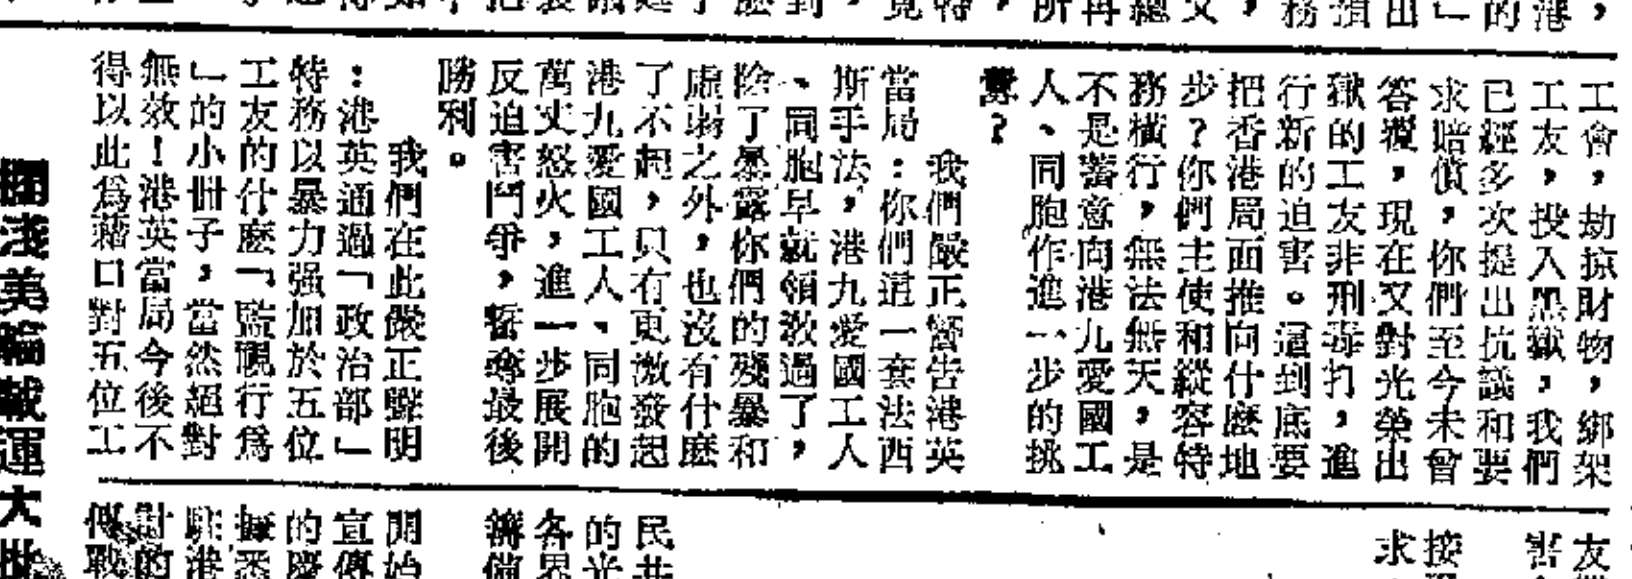 港，
的
」
出
預
務
，
文
總
再
所
，
特
竟
，
到
工會，劫掠財物，綁架
工友，投入黑獄，我們
已經多次提出抗議和要
求賠償，你們至今未曾
答覆，現在又對光榮出
獄的工友非刑毒打，進
行新的迫害。這到底要
把香港局面推向什麽地
步？你們主使和縱容特
務橫行，無法無天，是
不是蓄意向港九愛國工
人、同胞作進一步的挑
釁？
我們嚴正警告港英
當局：你們這一套法西
斯手法，港九愛國工人
、同胞早就領教過了，
除了暴露你們的殘暴和
虛弱之外，也沒有什麽
了不起，只有更激發起
港九愛國工人、同胞的
萬丈怒火，進一步展開
反迫害鬥爭，誓奪最後
勝利。
我們在此嚴正聲明
：港英通過「政治部」
特務以暴力强加於五位
工友的什麽「監視行爲
」的小冊子，當然絕對
無效！港英當局今後不
得以此爲藉口對五位工
友
害
接
求
民共
的光
各界
籌備
開始
宣傳
的慶
據悉
駐港
對的
傳戰
擱淺美輪載運大批